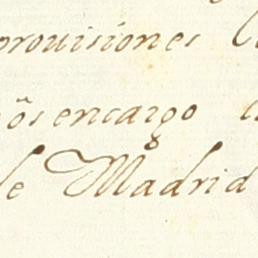 provisiones
encargo
de Madrid